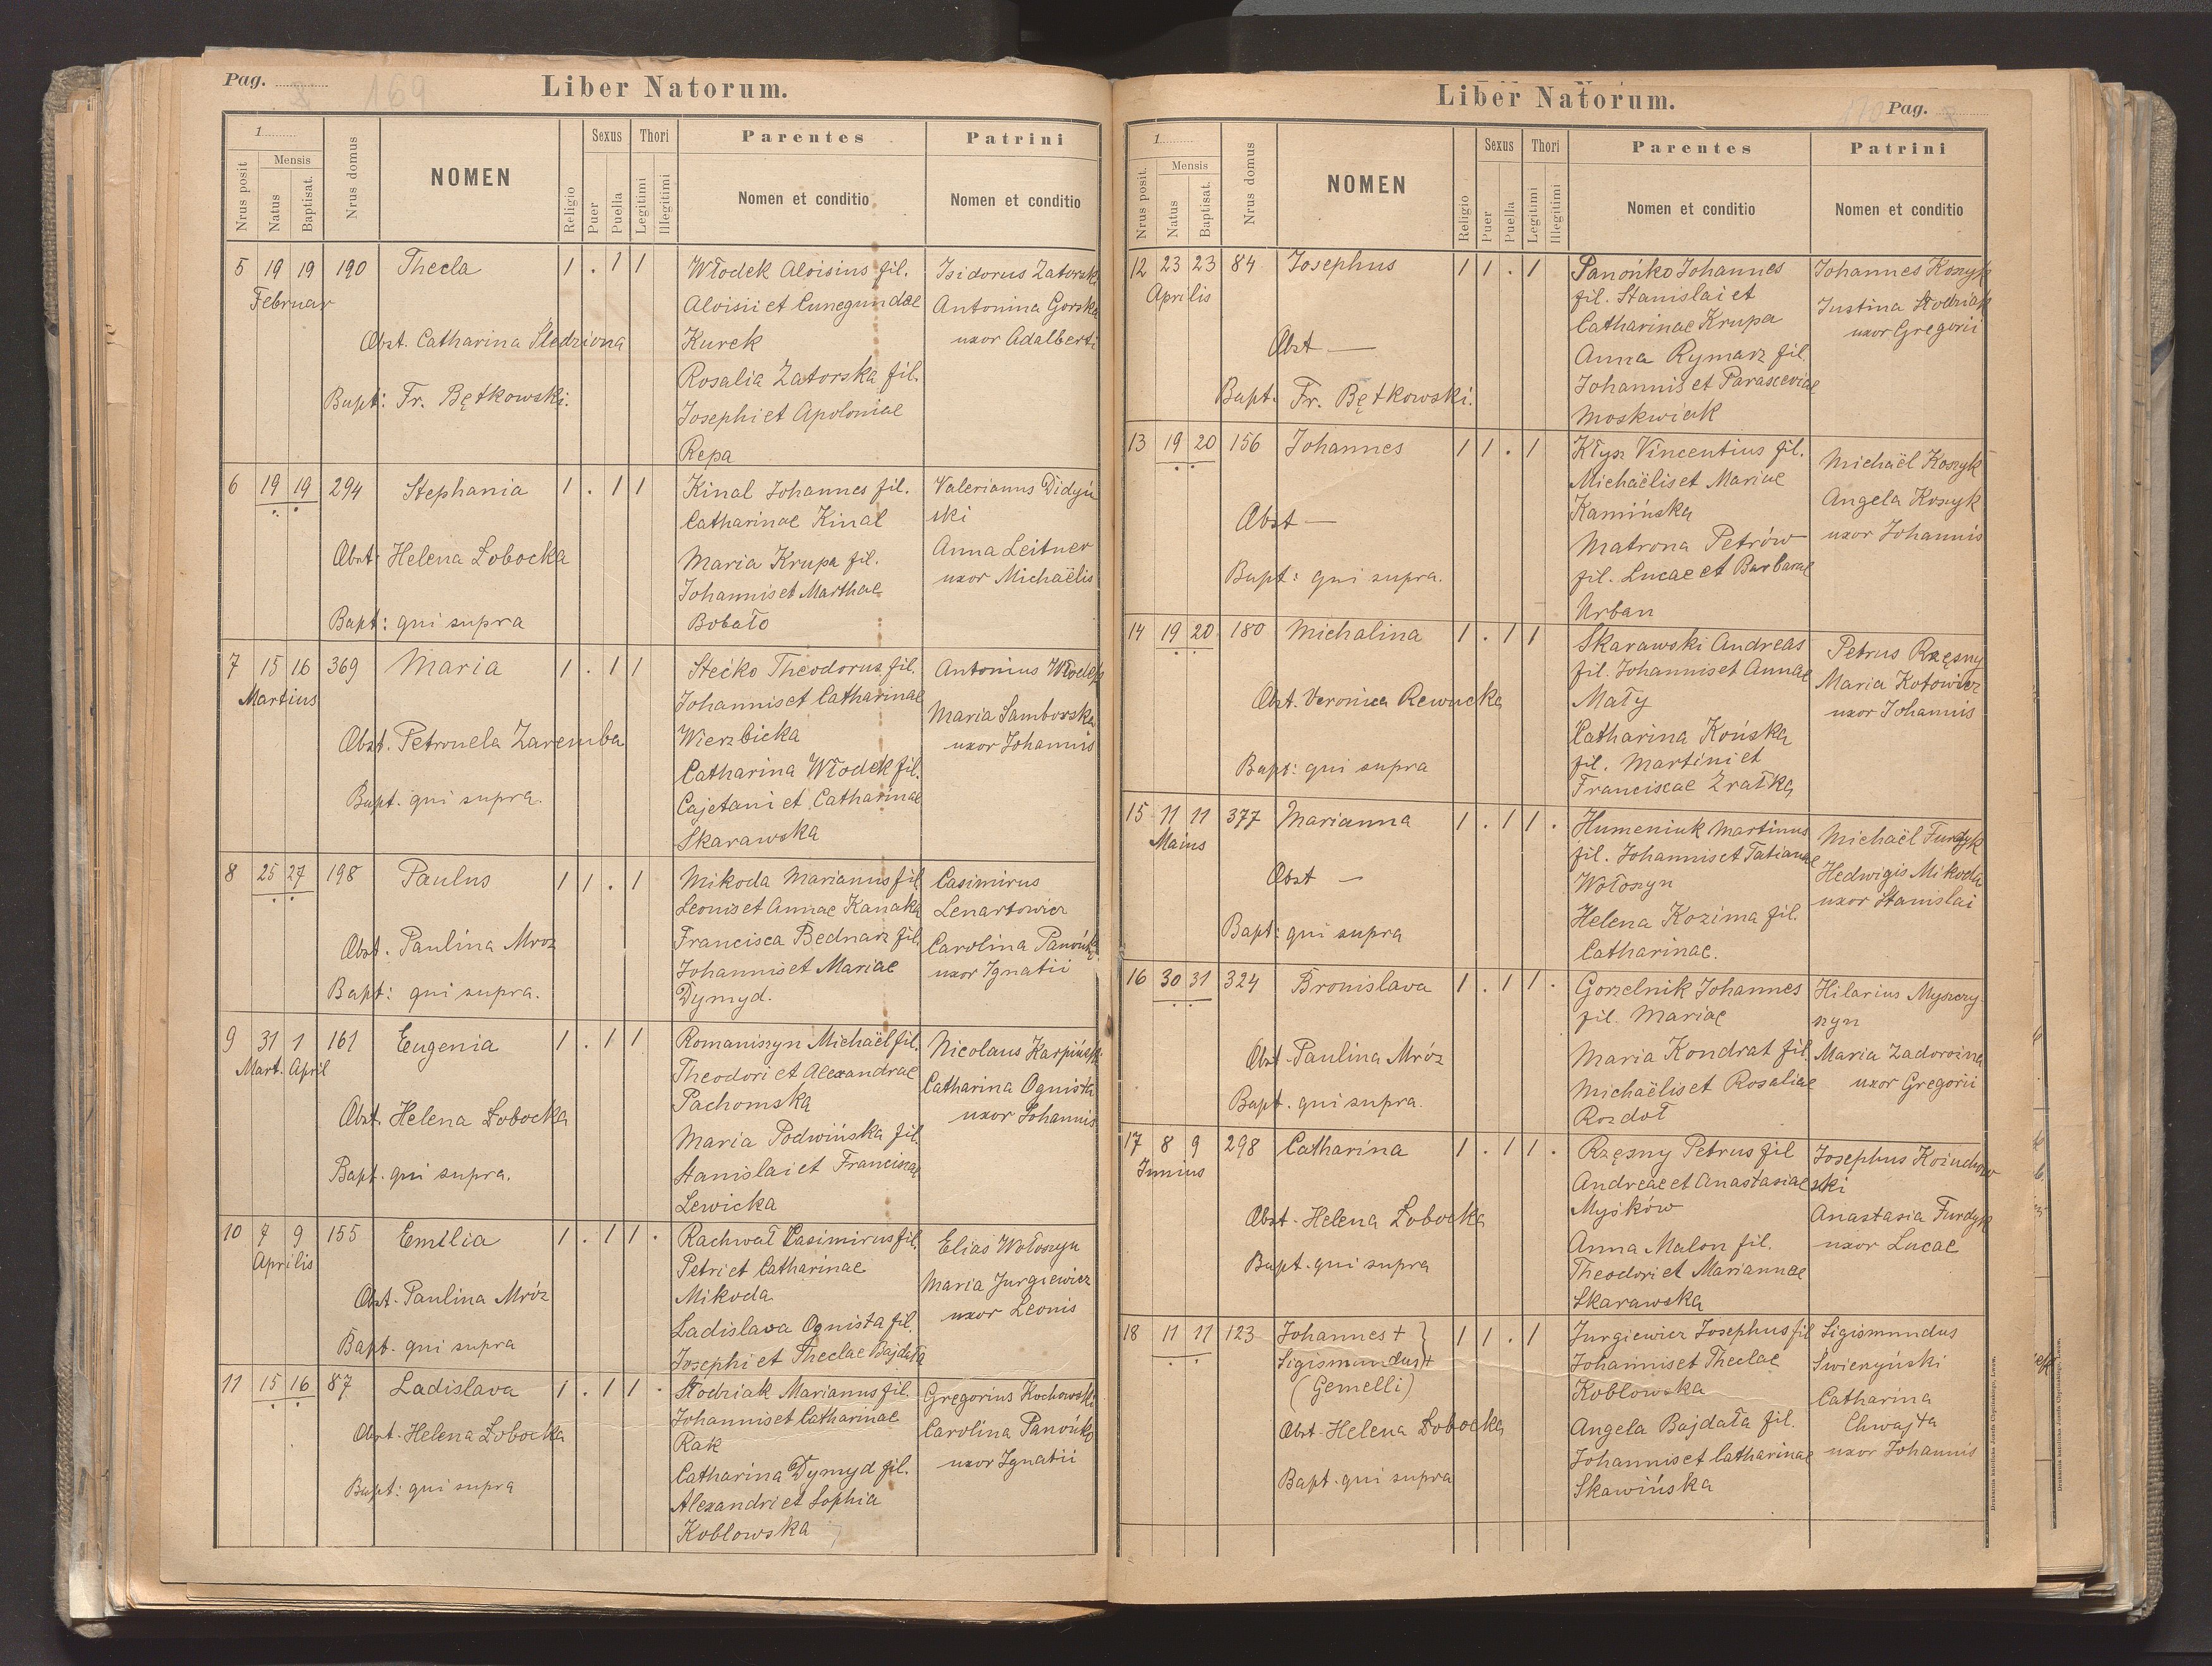 Pag.
169
Liber Natorum.
1
Nrus posit
Mensis
Natus
Baptisat.
Nrus domus
NOMEN
Religio
Sexus
Puer
Puella
Thori
Legitimi
Illegitimi
Parentes
Nomen et conditio
Patrini
Nomen et conditio
5 19 19 190 Thecla 1 . 1 1
Februar
Obst. Catharina Śledziona
Bapt: Fr. Bętkowski.
Włodek Aloisius fil.
Aloisii et Cunegundae
Kurek
Rosalia Zatorska fil.
Josephi et Apoloniae
Repa
Isidorus Zatorski
Antonina Gorska
uxor Adalberti
6 19 19 294 Stephania 1 . 1 1
Obst: Helena Łobocka
Bapt: qui supra
Kinal Johannes fil.
Catharinae Kinal
Maria Krupa fil.
Johannis et Marthae
Bobało
Valerianus Didyń
ski
Anna Leitner
uxor Michaëlis
7 15 16 369 Maria 1 . 1 1
Martius
Obst. Petronela Zaremba
Bapt. qui supra.
Stećko Theodorus fil.
Johannis et Catharinae
Wierzbicka
Catharina Włodek fil.
Cajetani et Catharinae
Skarawska
Antonius Włodek
Maria Samborska
uxor Johannis
8 25 27 198 Paulus 1 1 . 1
Obst. Paulina Mroz
Bapt: qui supra.
Mikoda Marianus fil
Leonis et Annae Kanaka
Francisca Bednarz fil.
Johannis et Mariae
Dymyd.
Casimirus
Lenartowicz
Carolina Panońko
uxor Ignatii
9 31 1 161 Eugenia 1 . 1 1
Mart. April
Obst. Helena Łobocka
Bapt. qui supra.
Romaniszyn Michaël fil.
Theodori et Alexandrae
Pachomska
Maria Podwińska fil.
Stanislai et Franciscae
Lewicka
Nicolaus Karpiński
Catharina Ognista
uxor Johannis
10 7 9 155 Emilia 1 . 1 1 .
Aprilis
Obst. Paulina Mróz
Bapt. qui supra
Rachwał Casimirus fil.
Petri et Catharinae
Mikoda
Ladislava Ognista fil.
Josephi et Theclae Bajdała
Elias Wołoszyn
Maria Jurgiewicz
uxor Leonis
11 15 16 87 Ladislava 1 . 1 1 .
Obst. Helena Łobocka
Bapt: qui supra
Słodziak Marianus fil.
Johannis et Catharinae
Rak
Catharina Dymyd fil.
Alexandri et Sophia
Koblowska
Gregorius Kochowski
Carolina Panońko
uxor Ignatii
Liber Natorum.
Pag.
1
Nrus posit.
Mensis
Natus
Baptisat.
Nrus domus
NOMEN
Religio
Sexus
Puer
Puella
Thori
Legitimi
Illegitimi
Parentes
Nomen et conditio
Patrini
Nomen et conditio
12 23 23 84 Josephus 1 1 . 1
Aprilis
Obst —
Bapt. Fr. Bętkowski.
Panońko Johannes
fil. Stanislai et
Catharinae Krupa
Anna Rymarz fil.
Johannis et Parasceviae
Moskwiak
Johannes Koszyk
Justina Słodziak
uxor Gregorii
13 19 20 156 Johannes 1 1 . 1
Obst —
Bapt: qui supra.
Kłysz Vincentius fil.
Michaëlis et Mariae
Kamińska
Matrona Petrów
fil. Lucae et Barbarae
Urban
Michaël Koszyk
Angela Koszyk
uxor Johannis
14 19 20 180 Michalina 1 . 1 1
Obst. Veronica Rewucka
Bapt: qui supra
Skarawski Andreas
fil. Johannis et Annae
Mały
Catharina Końska
fil. Martini et
Franciscae Zratka
Petrus Rzęsny
Maria Kotowicz
uxor Johannis
15 11 11 377 Marianna 1 . 1 1 .
Maius
Obst —
Bapt: qui supra
Humeniuk Martinus
fil. Johannis et Tatianae
Wołoszyn
Helena Kozima fil.
Catharinae.
Michaël Furdyk
Hedwigis Mikoda
uxor Stanislai
16 30 31 324 Bronislava 1 . 1 1 .
Obst. Paulina Mróz
Bapt. qui supra.
Gorzelnik Johannes
fil. Mariae
Maria Kondrat fil.
Michaëlis et Rosaliae
Rozdoł
Hilarius Myszczy
szyn
Maria Zadorożna
uxor Gregorii
17 8 9 298 Catharina 1 . 1 1 .
Junius
Obst. Helena Łobocka
Bapt. qui supra
Rzęsny Petrus fil
Andreae et Anastasiae
Myśków
Anna Malon fil.
Theodori et Mariannae
Skarawska
Josephus Kożuchow
ski
Anastasia Furdyk
uxor Lucae
18 11 11 123 Johannes + 1 1 . 1
Sigismundus +
(Gemelli)
Obst. Helena Łobocka
Bapt. qui supra
Jurgiewicz Josephus fil
Johannis et Theclae
Koblowska
Angela Bajdała fil.
Johannis et Catharinae
Skawińska
Sigismundus
Świerzyński
Catharina
Chwajta
uxor Johannis